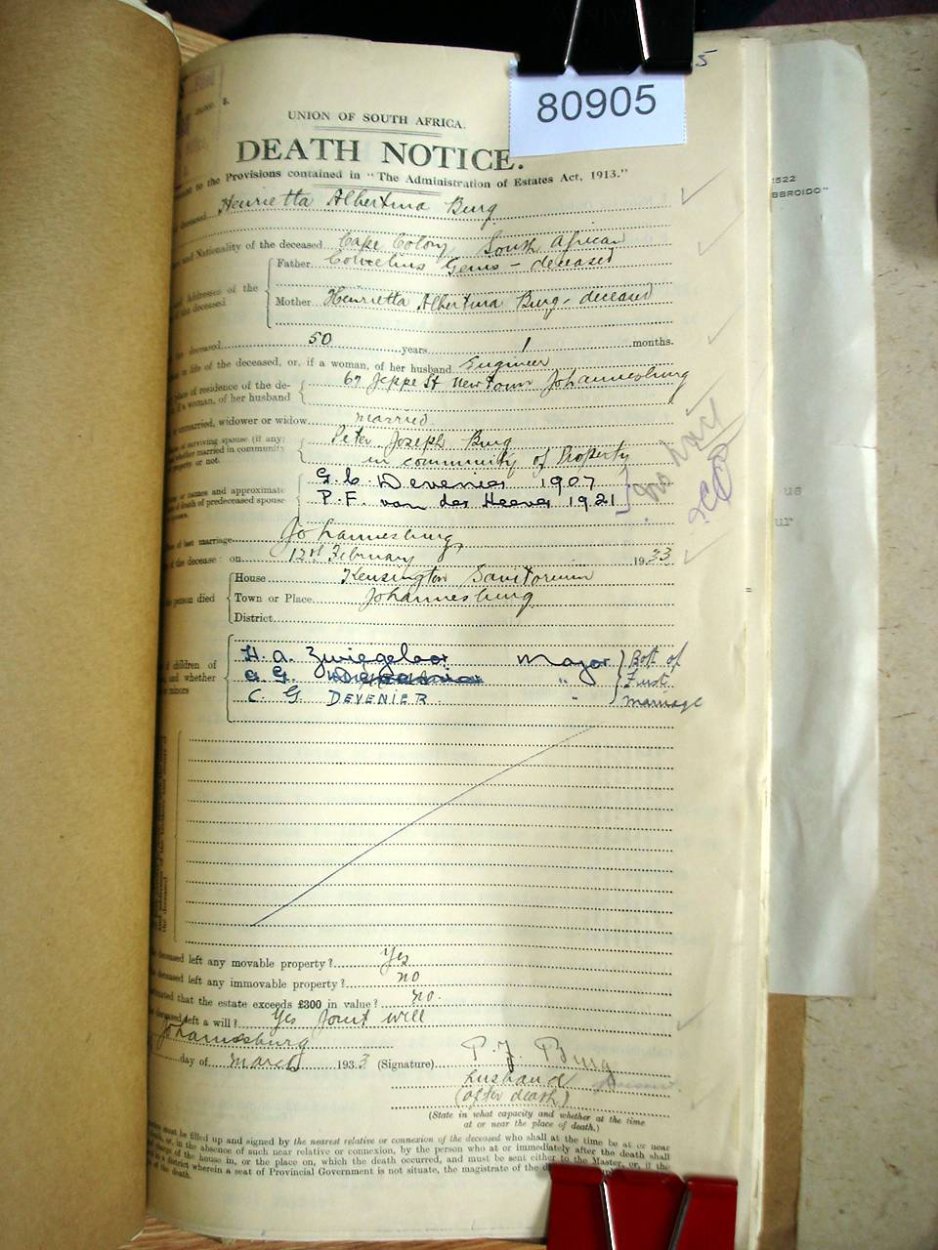 5
80905
UNION OF SOUTH AFRICA.
DEATH NOTICE.
to the Provisions contained in "The Administration of Estates Act, 1913."
deceased Henrietta Albertina Burg
and Nationality of the deceased Cape Colony South African
Father Cornelius - deceased
Addresses of the
the deceased
Mother Henrietta Albertina Burg - deceased
deceased 50 years 1 months.
in life of the deceased, or, if a woman, of her husband Engineer
place of residence of the de-
if a woman, of her husband
67 Jeppe St New Town Johannesburg
unmarried, widower or widow married
surviving spouse (if any;
whether married in community
property or not.
Peter Joseph Burg
in community of Property
or names and approximate
of death of predeceased spouse
G. C. Devenier 1907
P. F. van der Heever 1921
of last marriage Johannesburg,
of the decease: on 12th February 1933
House Kensington Sanitorium
person died
Town or Place Johannesburg
District
children of
and whether
minors
H. A. Zwiegelaar Major
G. G. "
C. G. DEVENIER "
Both of
First
marriage
deceased left any movable property? Yes
deceased left any immovable property? no
estimated that the estate exceeds £300 in value? no.
deceased left a will? Yes Joint will
Johannesburg
day of March 1933 (Signature) P. J. Burg
husband
(after death)
(State in what capacity and whether at the time
at or near the place of death.)
must be filled up and signed by the nearest relative or connexion of the deceased who shall at the time be at or near
or, in the absence of such near relative or connexion, by the person who at or immediately after the death shall
charge of the house in, or the place on, which the death occurred, and must be sent either to the Master, or, if the
a district wherein a seat of Provincial Government is not situate, the magistrate of the
of the death.